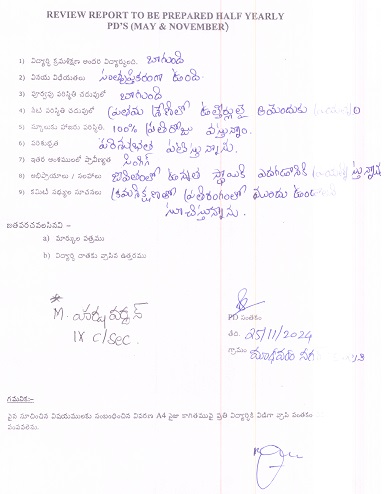 REVIEW REPORT TO BE PREPARED HALF YEARLY
PD'S (MAY & NOVEMBER)
1) విద్యార్థి క్రమశిక్షణ అందరి విద్యార్థులపై. బాగుంది
2) వినయ విధేయతలు సంతృప్తికరంగా ఉంది.
3) పూర్వపు పరిస్థితి చదువులో బాగుంది
4) నేటి పరిస్థితి చదువులో ప్రథమ శ్రేణిలో ఉత్తీర్ణులై
5) స్కూలుకు హాజరు పరిస్థితి. 100% ప్రతిరోజు వస్తున్నాం.
6) పరిశుభ్రత
7) ఇతర అంశములలో ప్రావీణ్యత సింగింగ్
8) అభిప్రాయాలు / సలహాలు జీవితంలో ఉన్నత స్థాయికి ఎదగడానికి
9) కమిటీ సభ్యుల సూచనలు క్రమశిక్షణతో ప్రతిరంగంలో ముందు
సూచిస్తున్నాను.
జతపరచవలసినవి :-
a) మార్కుల పత్రము
b) విద్యార్థి దాతకు వ్రాసిన ఉత్తరము
M.
IX c/sec.
PD సంతకం
తేది. 25/11/2024
గ్రామం
గమనిక:-
పైన సూచించిన విషయములకు సంబంధించిన వివరణ A4 సైజు కాగితముపై ప్రతి విద్యార్థికి విడిగా వ్రాసి సంతకం
పంపవలెను.